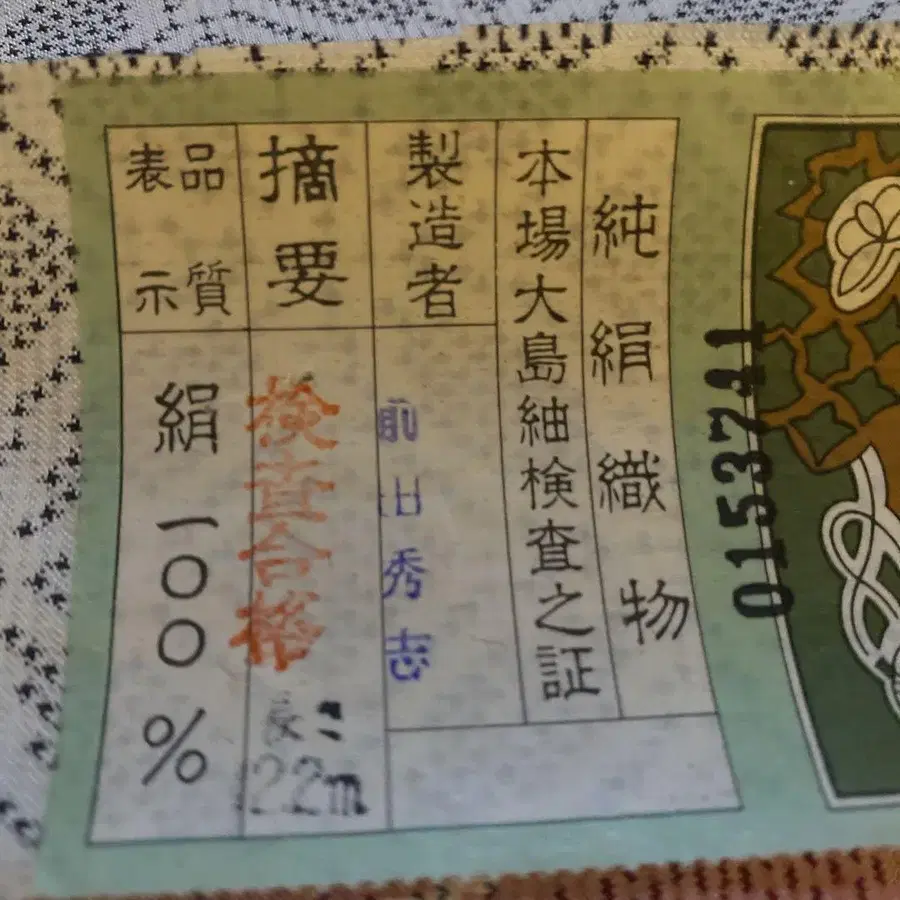 0153741
純絹織物
本場大島紬検査之証
製造者
前山秀志
摘要
検査合格
長さ
品質
表示
絹一〇〇%